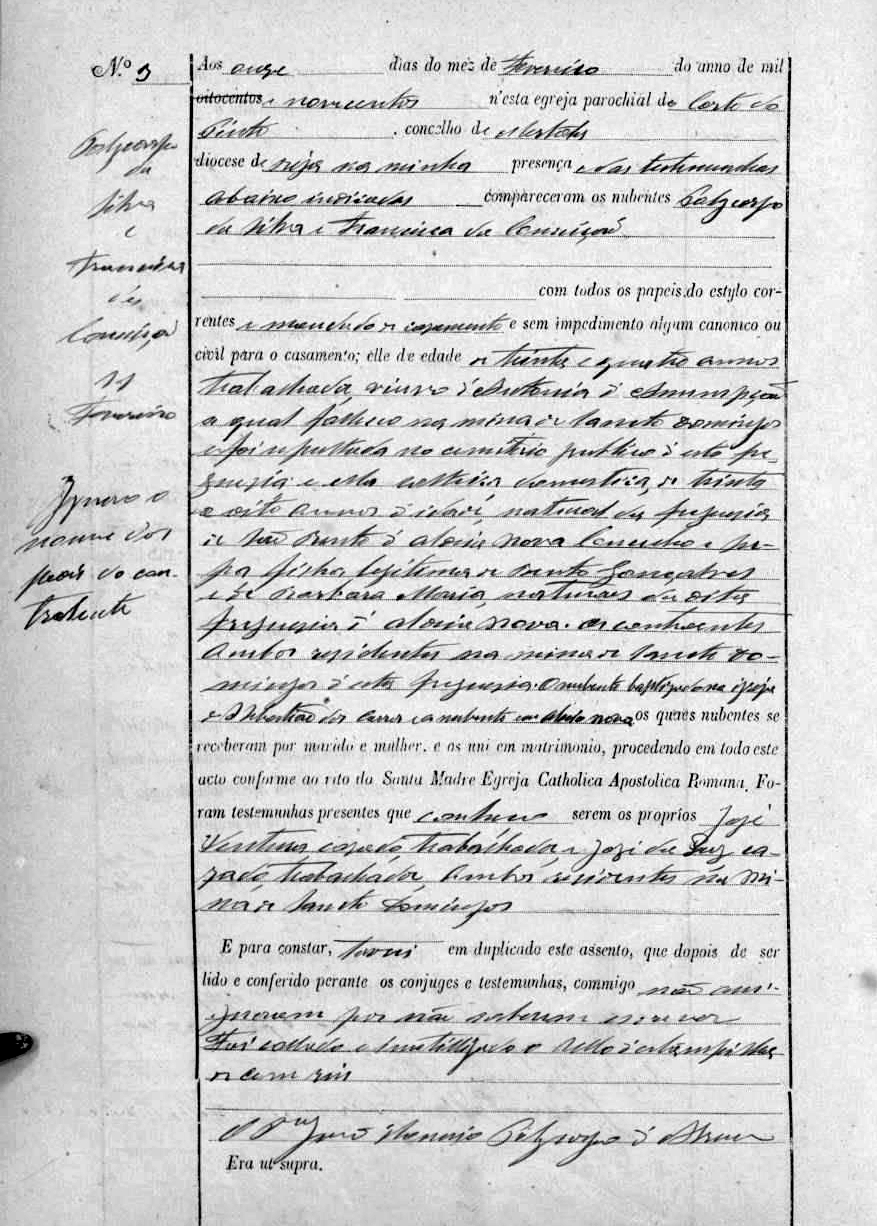 N.º 3
Polycarpo
da
Silva
e
Francisca
da
Conceição
11
Fevereiro
Ignoro o
nome dos
paes do con-
trahente
Aos onze dias do mez de Fevereiro do anno de mil
oitocentos e novecentos n'esta egreja parochial de Corte do
Pinto, concelho de Mertola
diocese de Beja na minha presença e das testemunhas
abaixo indicadas compareceram os nubentes Polycarpo
da Silva e Francisca da Conceição
com todos os papeis do estylo cor-
rentes e mandado de casamento e sem impedimento algum canonico ou
civil para o casamento; elle de edade de trinta e quatro annos
trabalhador, viuvo d'Antonia d'Assumpção
a qual falleceu na mina de Sancto Domingos
e foi sepultada no cemiterio publico d'esta fre-
guezia e ella solteira, domestica, de trinta
e oito annos d'idade, natural da freguesia
de São Bento d'Aldeia Nova Concelho de Ser-
pa filha legitima de Bento Gonçalves
e de Barbara Maria, naturaes da dita
freguesia d'Aldeia Nova. Os contrahentes
ambos residentes na mina de Sancto Do-
mingos d'esta freguesia. O nubente baptizado na igreja
de S. Sebastião dos Carros e a nubente em Aldeia Nova, os quaes nubentes se
receberam por marido e mulher, e os uni em matrimonio, procedendo em todo este
acto conforme ao rito da Santa Madre Egreja Catholica Apostolica Romana. Fo-
ram testemunhas presentes que conheço serem os proprios José
Ventura casado trabalhador e José da Luz ca-
zado trabalhador, ambos residentes na Mi-
na de Sancto Domingos
E para constar, lavrei em duplicado este assento, que depois de ser
lido e conferido perante os conjuges e testemunhas, commigo não assi-
gnaram por não saberem escrever
Foi collado e inutilizado o sello d'estampilha
de cem reis
Era ut supra.